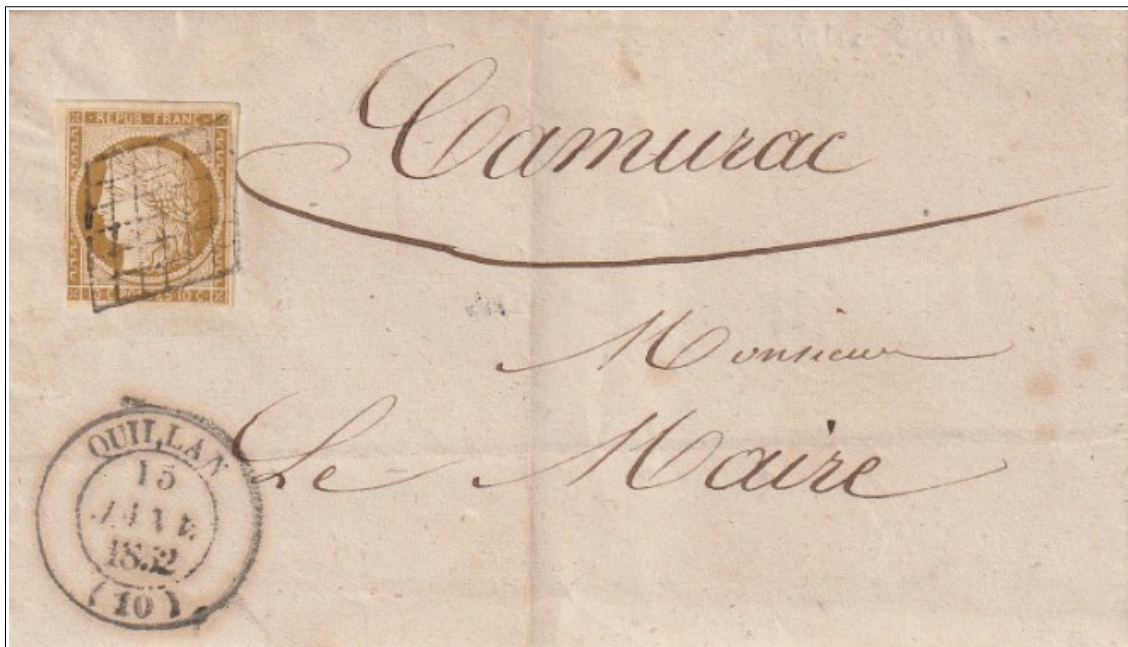 REPUB · FRANC
10 C
Camurac
Monsieur
Le Maire
QUILLAN
15
JANV.
1852
(10)